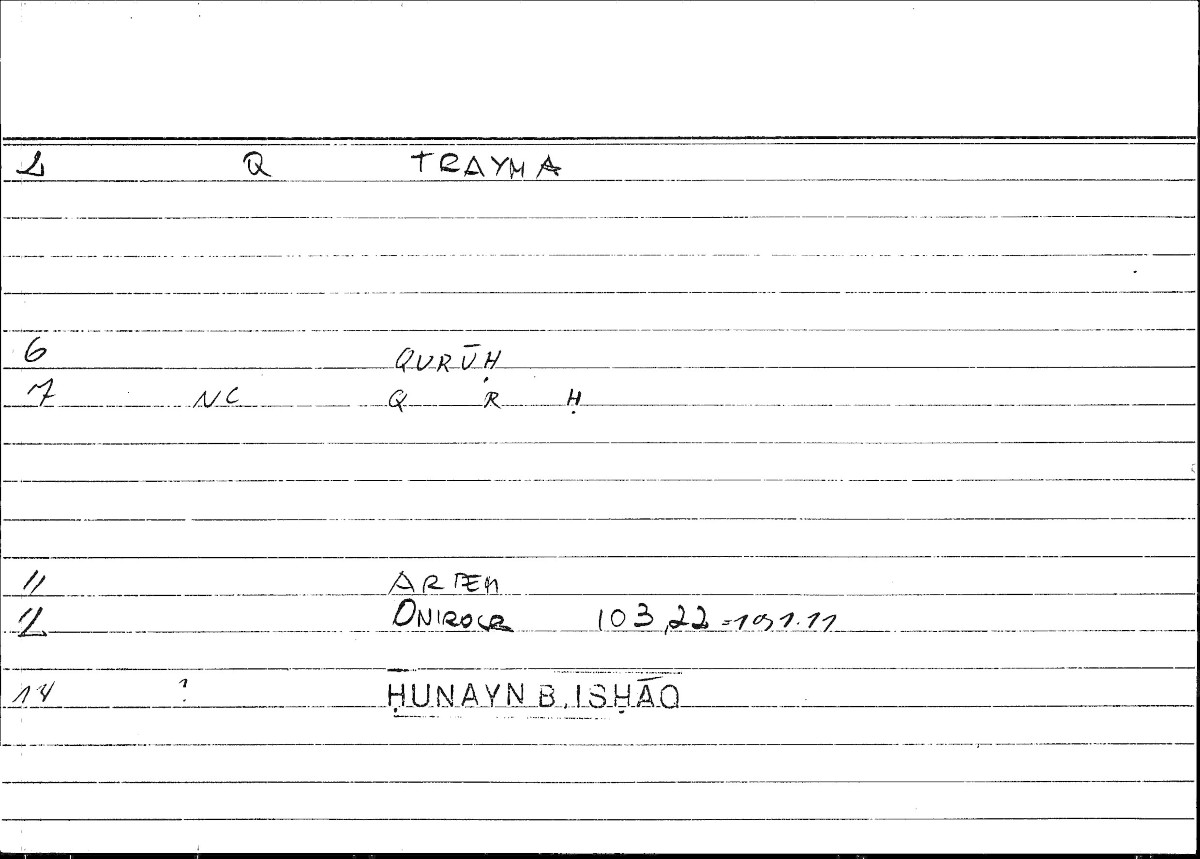 1 Q TRAYMA
6 QURŪḤ
7 NC Q R Ḥ
11 ARTEM
12 ONIROCR 103,22 = 191.11
14 ? ḤUNAYN B. ISḤĀQ